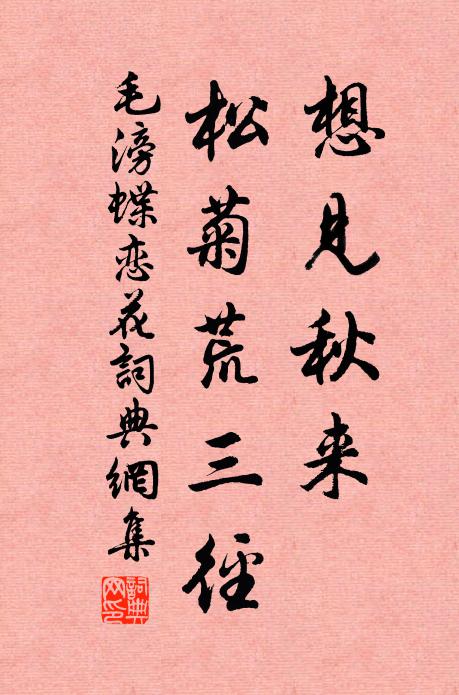 想见秋来
松菊荒三径
毛滂蝶恋花詞典網集
詞典网印